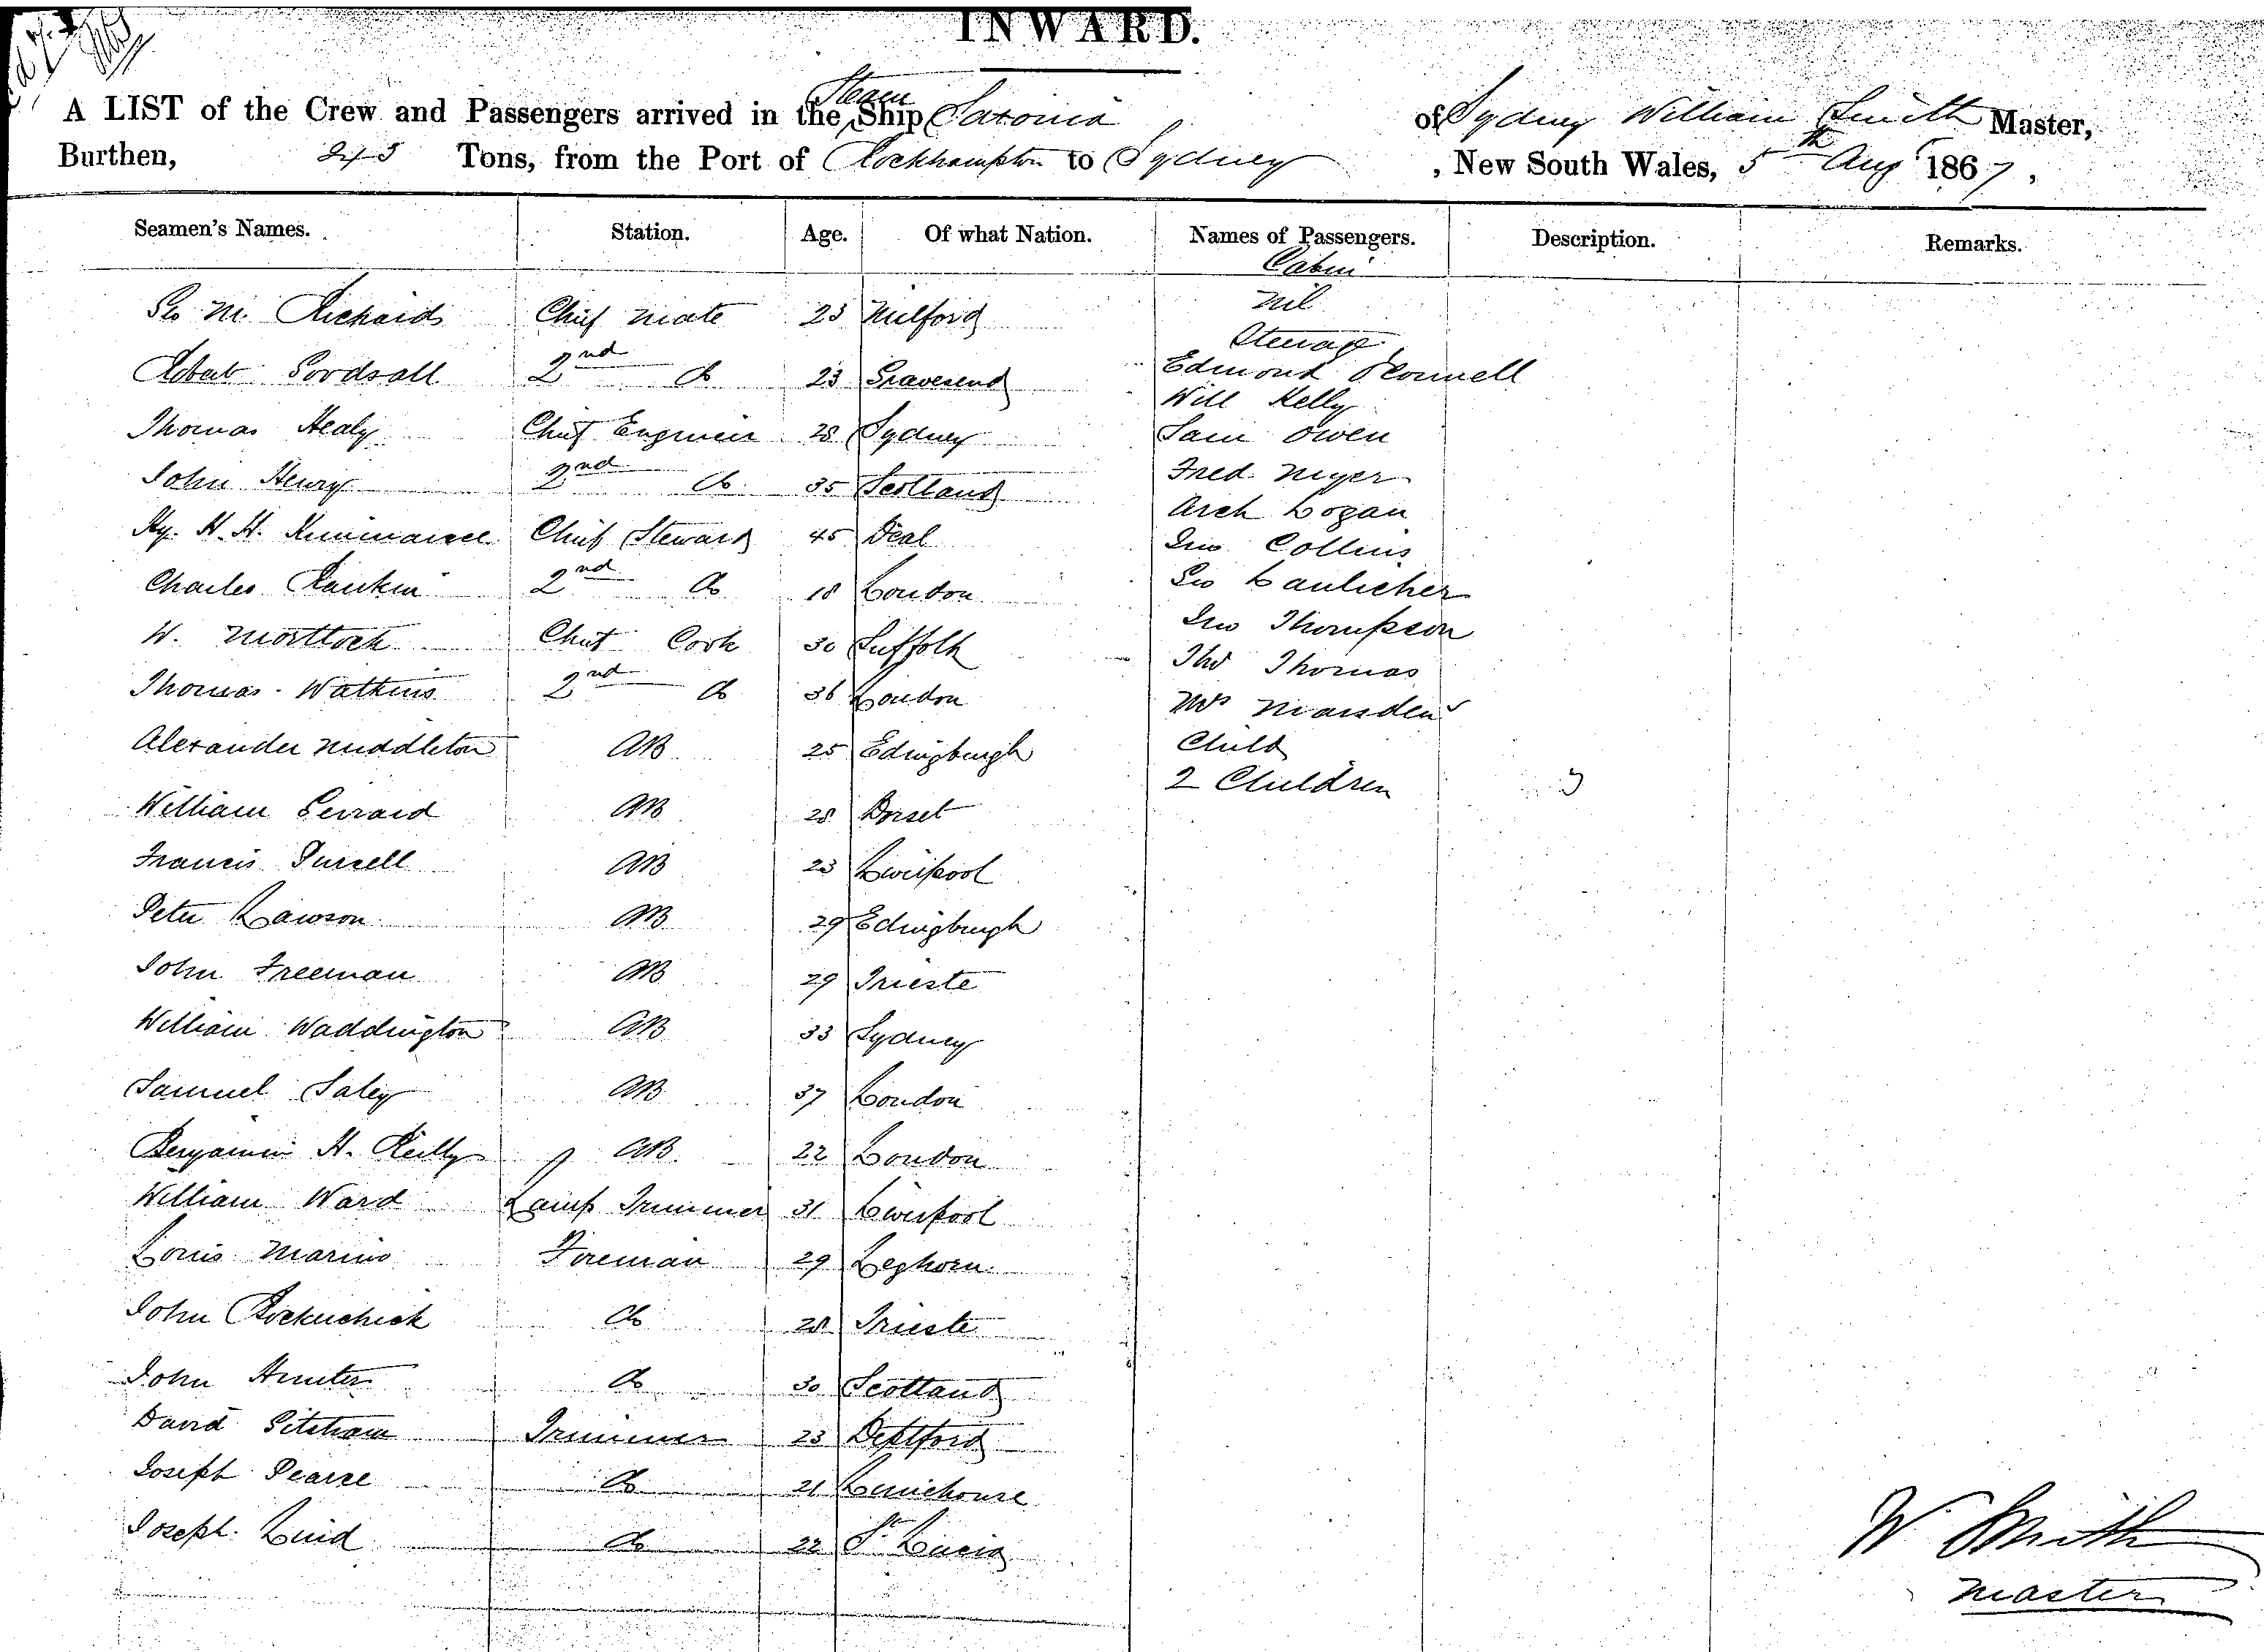 INWARD.
A LIST of the Crew and Passengers arrived in the Steam Ship Saxonia of Sydney William Smith Master,
Burthen, Tons, from the Port of Rockhampton to Sydney, New South Wales, 5th Aug 1867,
Seamen's Names. Station. Age. Of what Nation. Names of Passengers. Description. Remarks.
Cabin
Nil
Geo M. Richards Chief Mate 23 Milford
Steerage
Robert 2nd do 23 Gravesend
Edmond OConnell
Will Kelly
Thomas Healy Chief Engineer 28 Sydney
Sam Owen
John Henry 2nd do 35 Scotland
Fred
Arch Logan
Hy. H. H. Chief Steward 45 Deal
Jno Collins
Charles Rankin 2nd do 18 London
Geo
Jno Thompson
W. Mortlock Chief Cook 30 Suffolk
Tho Thomas
Thomas Watkins 2nd do 36 London
Mrs
Alexander Middleton AB 25 Edingburgh
Child
2 Children 3
William Gerrard AB 28 Dorset
Francis Purcell AB 23 Liverpool
Peter Lawson AB 29 Edingburgh
John Freeman AB 29 Trieste
William Waddington AB 33 Sydney
Samuel AB 37 London
Benjamin H. Reilly AB 22 London
William Ward Lamp Trimmer 31 Liverpool
Louis Marino Fireman 29 Leghorn
John do 28 Trieste
John Hunter do 30 Scotland
David Trimmer 23 Deptford
Joseph Pearce do 21 Limehouse
Joseph do 22 St Lucia
W Smith
Master